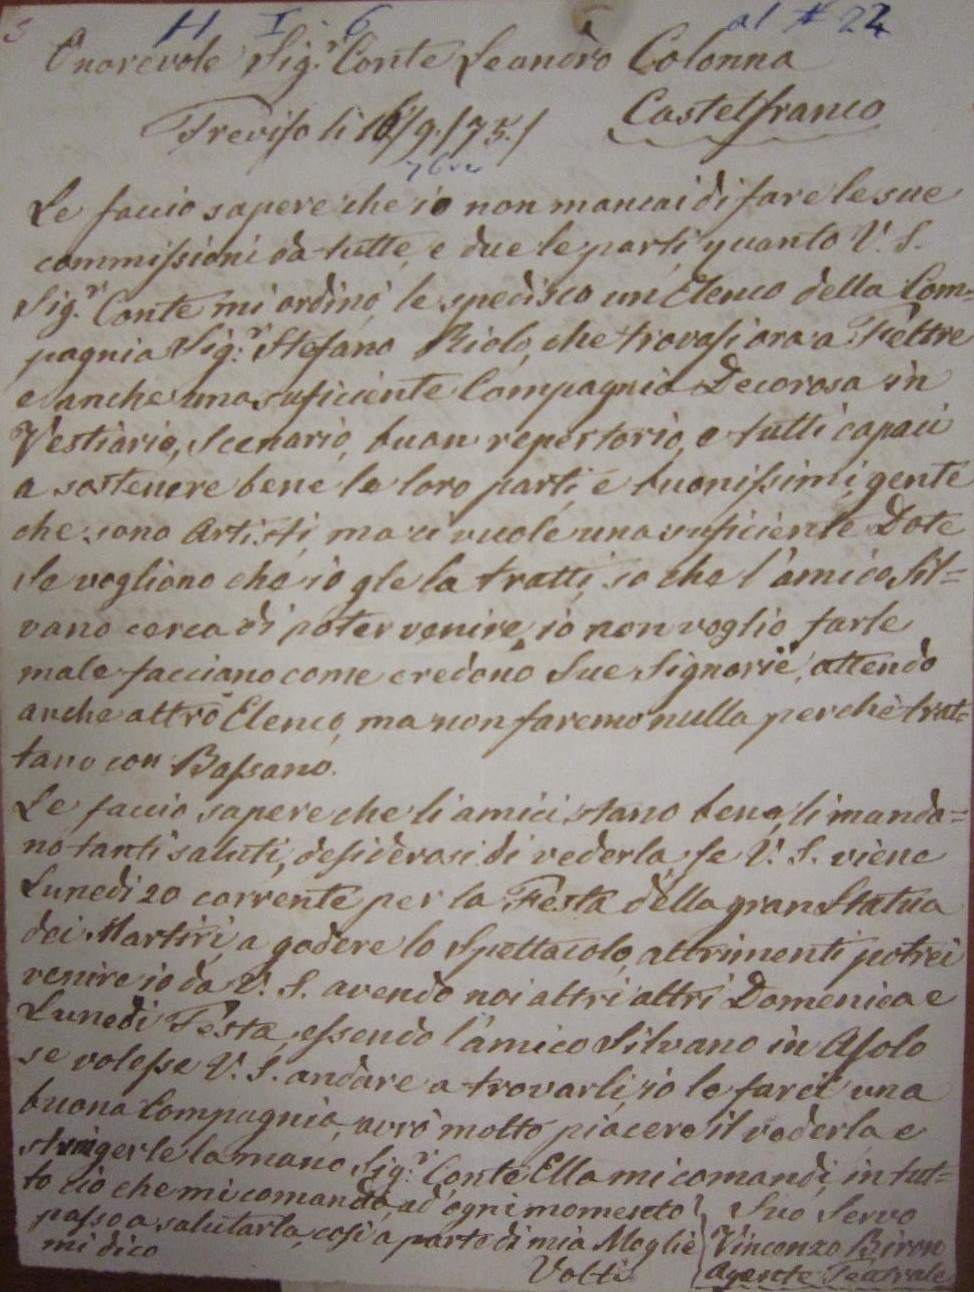 5 H I 6 al # 22
Onorevole Sig.r Conte Leandro Colonna
Castelfranco
Treviso li 16/9/75/
7bre
Le faccio sapere che io non mancai di fare le sue
commissioni da tutte, e due le parti, quanto V. S.
Sig.r Conte mi ordinò, le spedisco un Elenco della Com-
pagnia Sig.r Stefano Riolo, che trovasi ora a Feltre
e anche una suficiente Compagnia Decorosa in
Vestiario, Scenario, buon repertorio, e tutti capaci
a sostenere bene le loro parti, e buonissimi, gente
che sono Artisti, ma ci vuole una suficiente Dote
se vogliono che io gle la tratti, so che l'amico Sil=
vano cerca di poter venire, io non voglio farle
male facciano come credono Sue Signorie, attendo
anche altro Elenco, ma non faremo nulla perchè trat-
tano con Bassano.
Le faccio sapere che li amici stano bene, li manda=
no tanti saluti, desiderosi di vederla se V. S. viene
Lunedi 20 corrente per la Festa della gran Statua
dei Martiri, a godere lo Spettacolo, altrimenti potrei
venire io da V. S. avendo noi altri altri Domenica e
Lunedi Festa, essendo l'amico Silvano in Asolo
se volesse V. S. andare a trovarli, io le farei una
buona Compagnia, avrò molto piacere il vederla e
stringerle la mano Sig.r Conte Ella mi comandi, in tut=
to ciò che mi comanda, ad ogni momento
passo a salutarla, così a parte di mia Moglie
mi dico
Volti
Suo Servo
Vincenzo Biron
Agente Teatrale